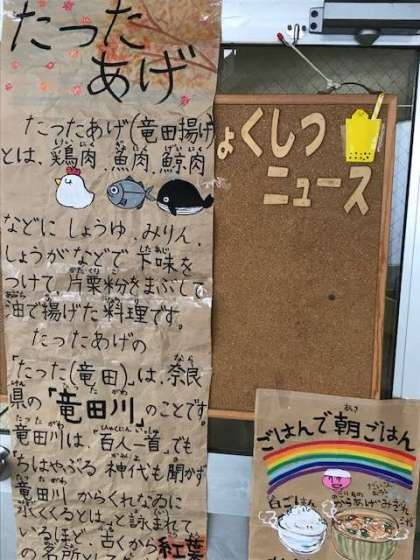 たった
あげ
たったあげ(竜田揚げ)
とは、鶏肉、魚肉、鯨肉
などにしょうゆ、みりん、
しょうがなどで下味を
つけて、片栗粉をまぶして
油で揚げた料理です。
たったあげの
「たった(竜田)」は、奈良
県の「竜田川」のことです。
竜田川は、「百人一首」でも
「ちはやぶる 神代も聞かず
竜田川 からくれなゐに
水くくるとは」と詠まれて
いるほど、古くから紅葉
の名所として
ょくしつ
ニュース
ごはんで朝ごはん
白ごはん